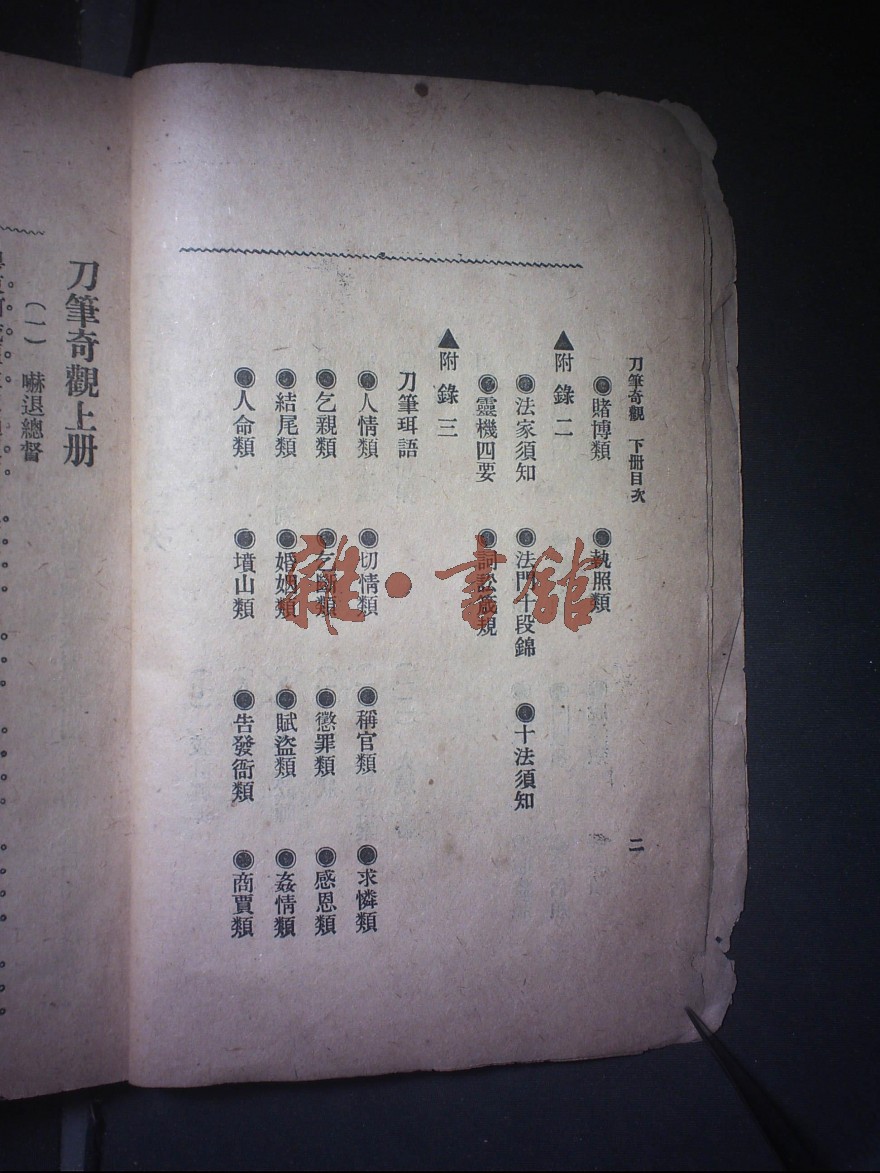 刀筆奇觀 下冊目次 二
◉賭博類 ◉執照類
▲附錄二
◉法家須知 ◉法門十段錦 ◉十法須知
◉靈機四要 ◉詞訟箴規
▲附錄三
刀筆珥語
◉人情類 ◉切情類 ◉稱官類 ◉求憐類
◉乞親類 ◉乞斷類 ◉懲罪類 ◉感恩類
◉結尾類 ◉婚姻類 ◉賦盜類 ◉姦情類
◉人命類 ◉墳山類 ◉告發衙類 ◉商賈類
刀筆奇觀上册
(一) 嚇退總督
雜·書館